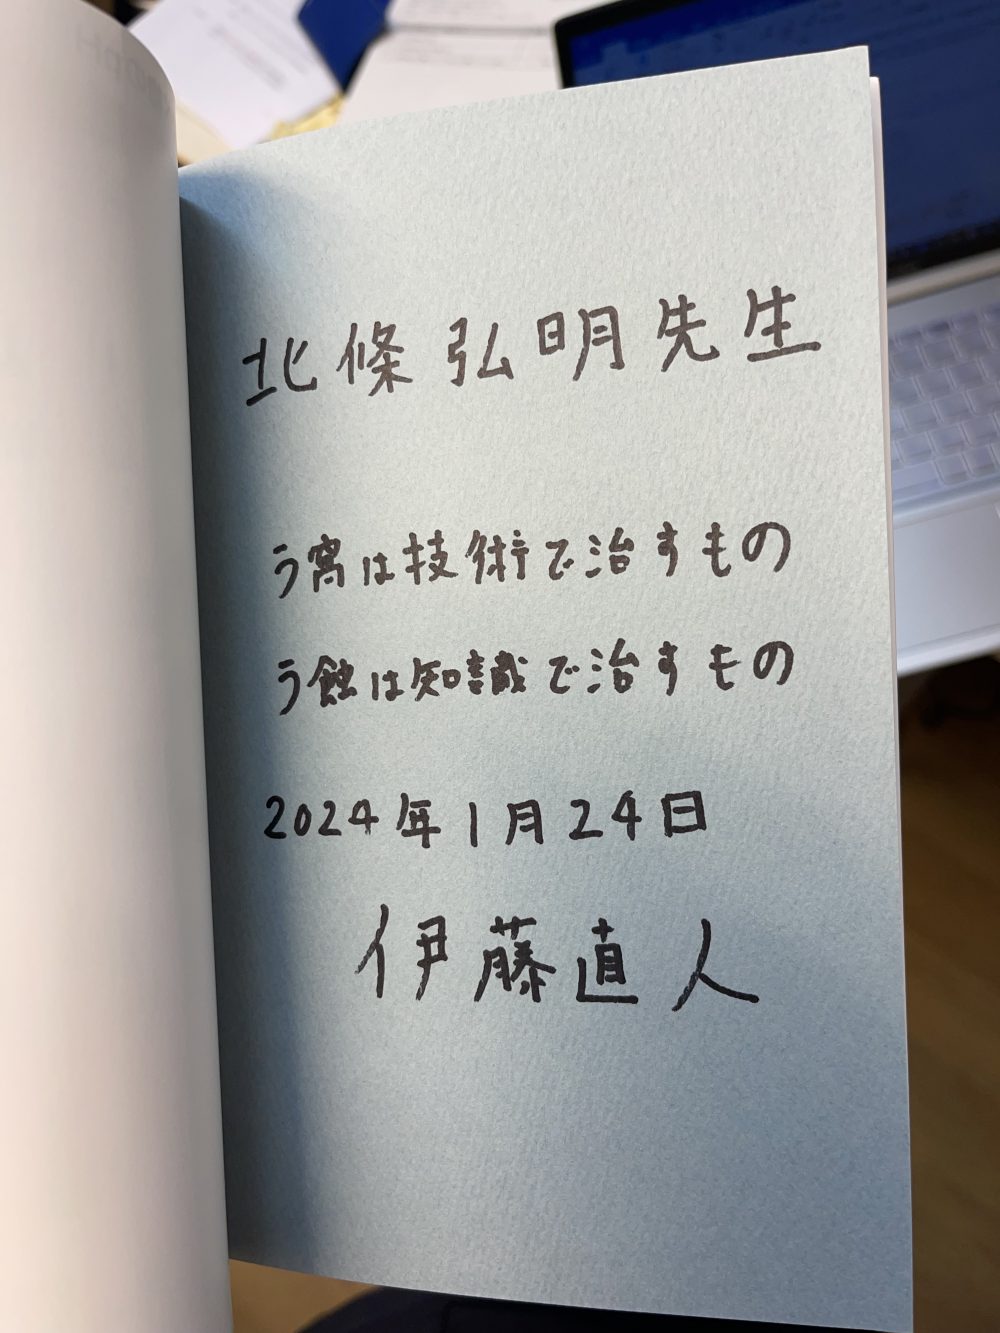 北條弘明先生
う窩は技術で治すもの
う蝕は知識で治すもの
2024年1月24日
伊藤直人